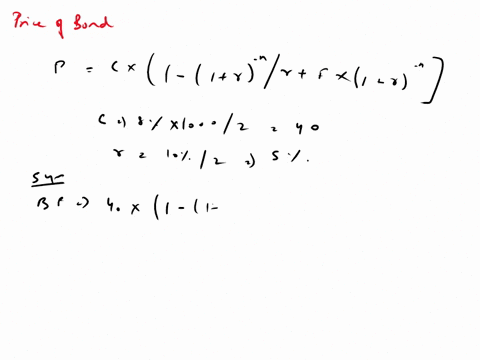 Price of Bond
P = C × (1 - (1 + r)^-n / r + F × (1 + r)^-n]
C => 8% × 1000 / 2 = 40
r = 10% / 2 => 5%.
5 yr
BP => 40 × (1 - (1-